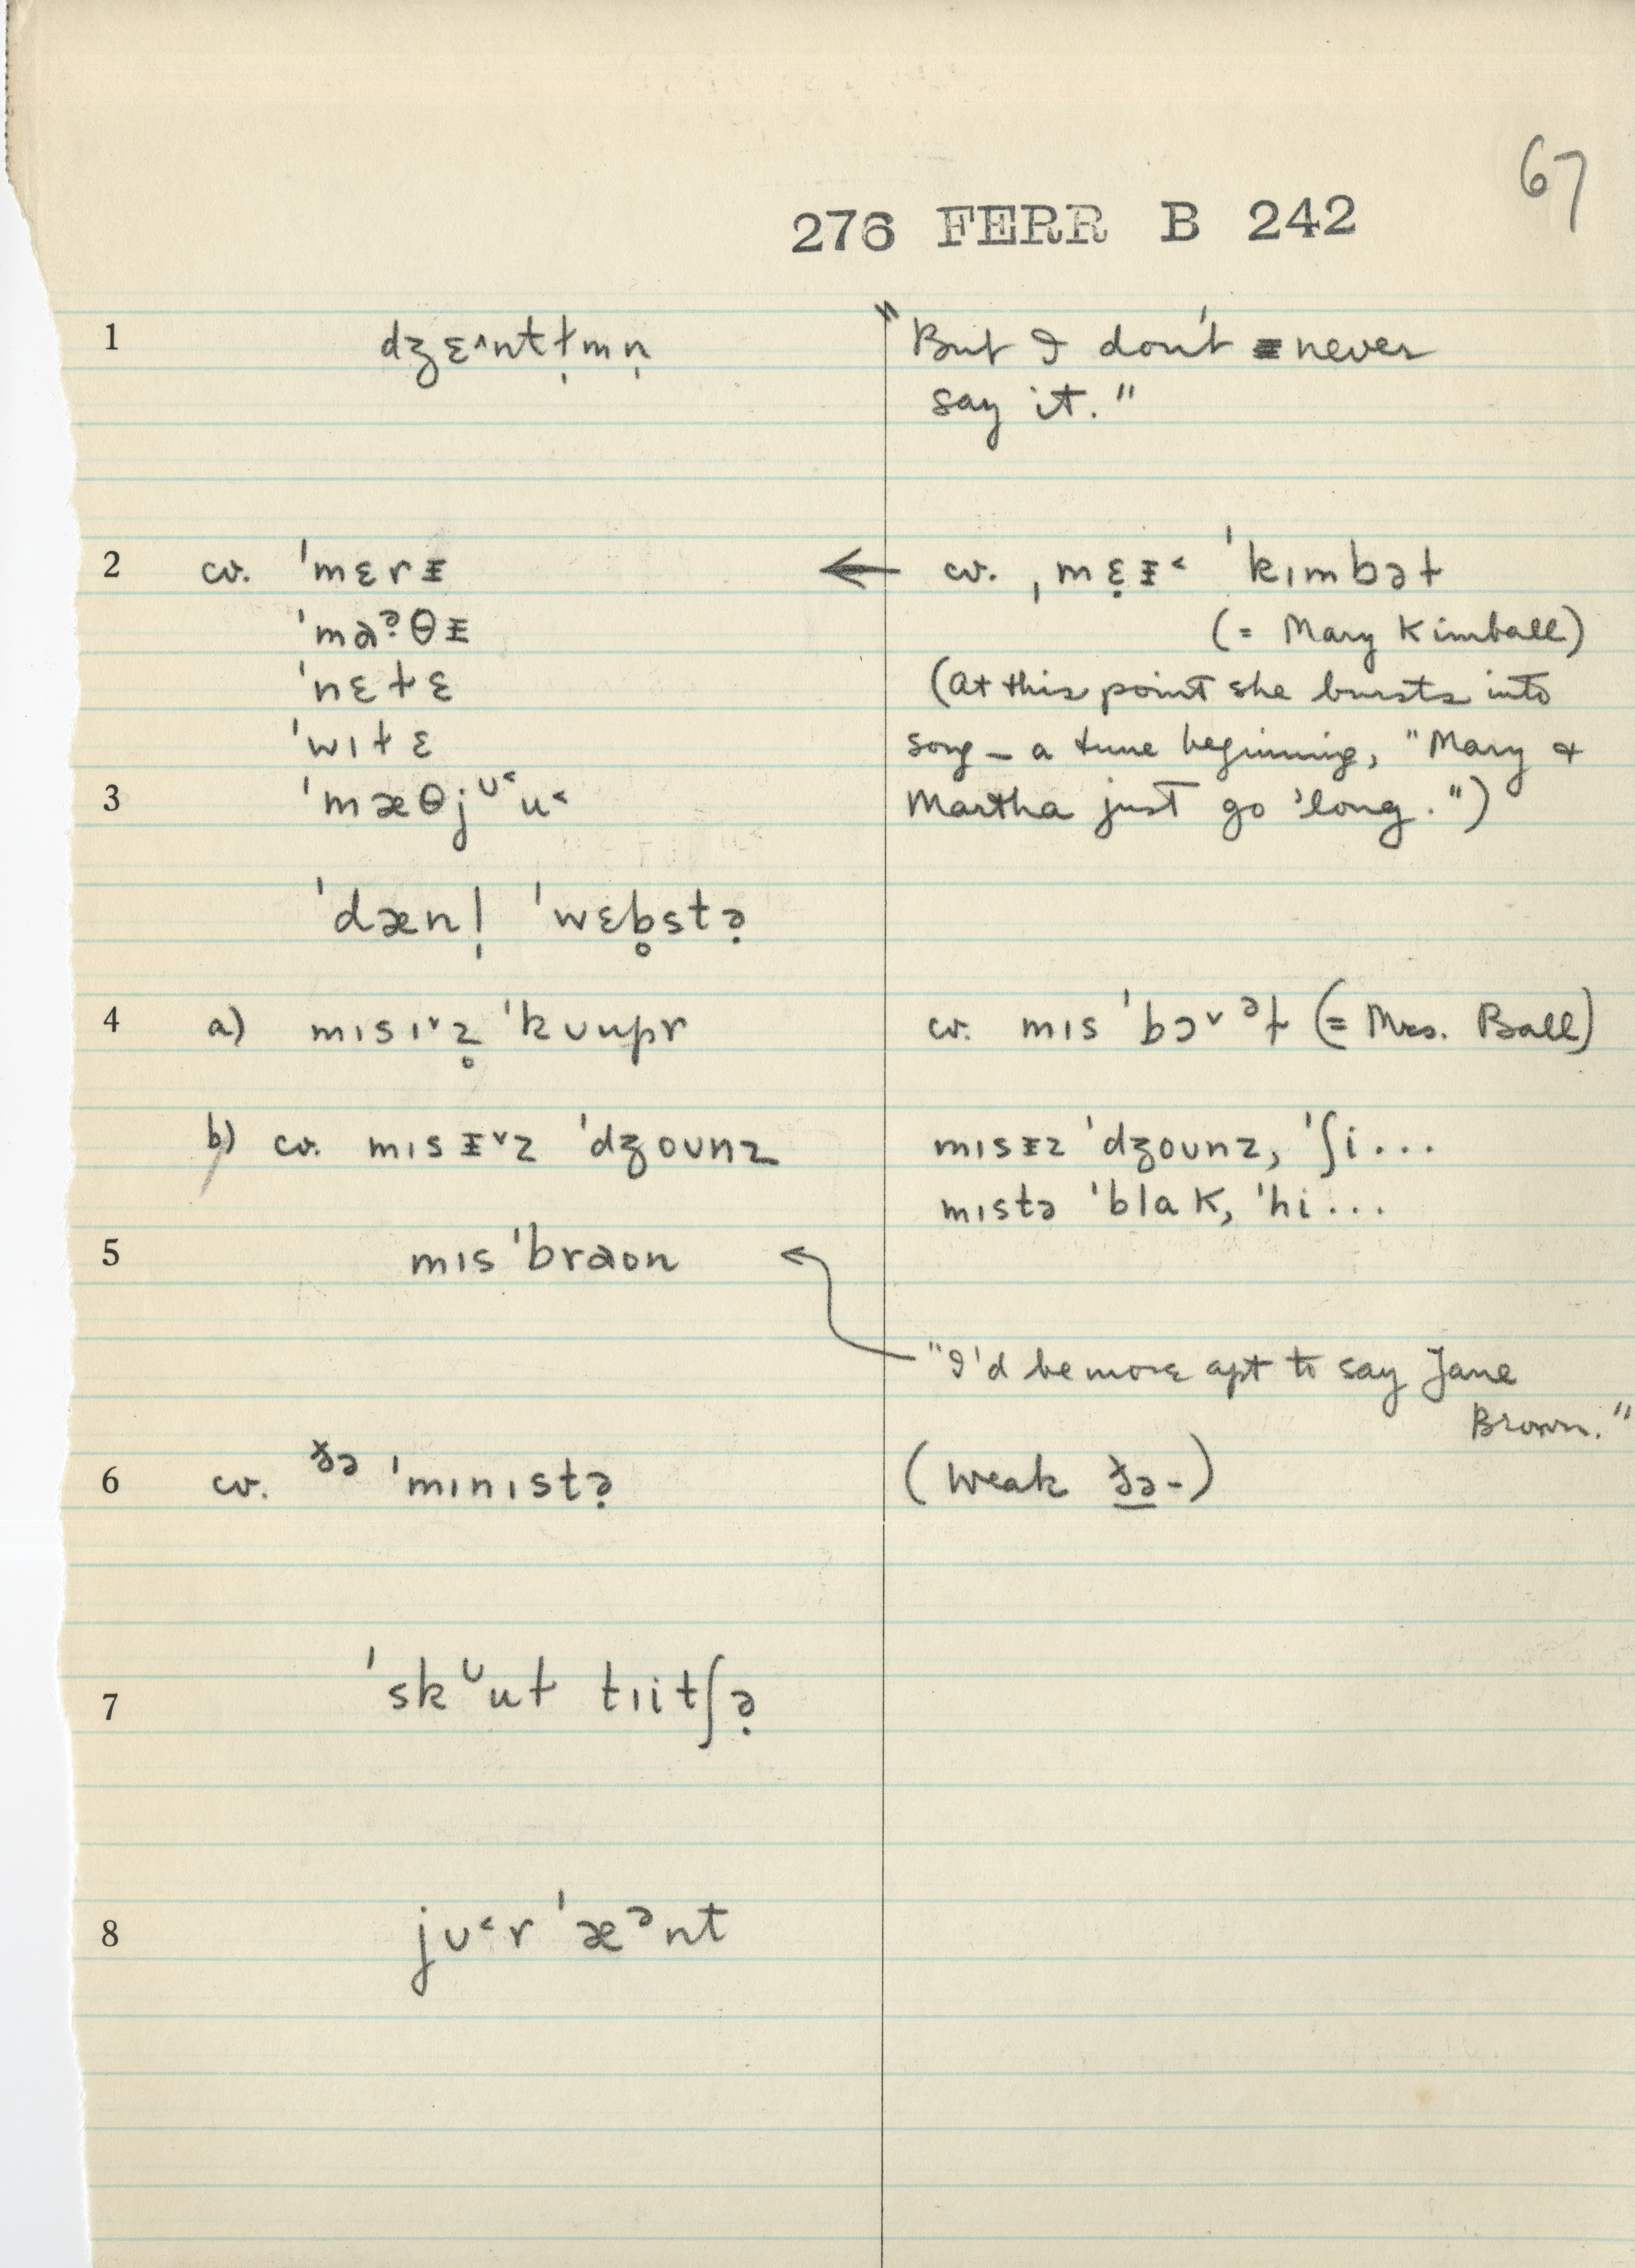 67
276 FERR B 242
1 dʒɛ^ntɫ̩mn̩ "But I don't never
say it."
2 cv. ˈmɛrᵻ ← cv. ˌmɛ̣ᵻ˂ ˈkɪmbəɫ
ˈmaˀ̣θᵻ (= Mary Kimball)
ˈnɛɫɛ (At this point she bursts into
ˈwɪɫɛ song – a tune beginning, "Mary &
3 ˈmæθjᶷ˂u˂ Martha just go 'long.")
ˈdænl̩ ˈwɛb̥stə̣
4 a) mɪsɪ˅z̥ ˈkᴜupr cv. mɪs ˈbɔ˅ᵊɫ (= Mrs. Ball)
b) cv. mɪsᵻ˅z ˈdʒoᴜnz mɪsᵻz ˈdʒoᴜnz, ˈʃi...
mɪstə ˈblak, ˈhi...
5 mɪs ˈbraon
"I'd be more apt to say Jane
Brown."
6 cv. ðə ˈmɪnɪstə̣ (weak ðə-)
7 ˈskᶷuɫ tɪitʃə̣
8 jᴜ˂r ˈæᵊnt